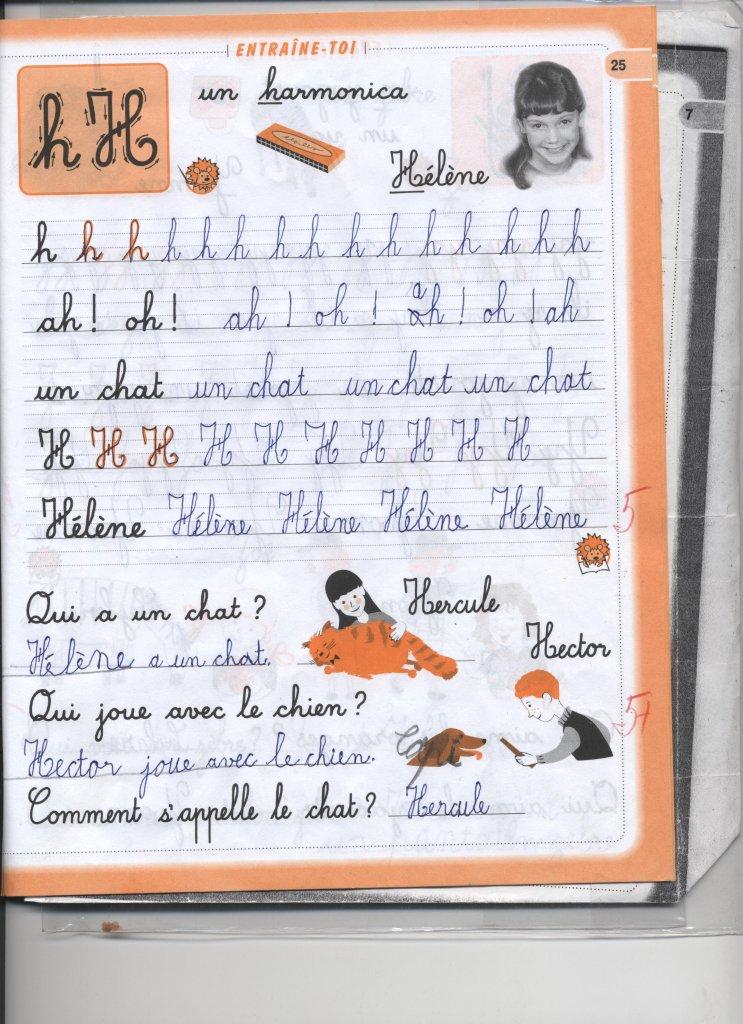 ENTRAÎNE-TOI
25
7
h H
un harmonica
Hélène
h h h h h h h h h h h h h h h
ah ! oh ! ah ! oh ! ah ! oh ! ah
un chat un chat un chat un chat
H H H H H H H H H H
Hélène Hélène Hélène Hélène Hélène
5
Qui a un chat ?
Hercule
Hélène a un chat.
Hector
Qui joue avec le chien ?
5+
Capi
Hector joue avec le chien.
Comment s'appelle le chat ? Hercule